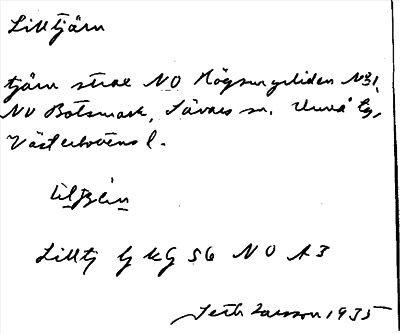 Lilltjärn
tjärn strax NO Högsmyrliden N31
NV Botsmark, Sävars sn. Umeå tg,
Västerbottens l.
Lilltj G kg 56 NO A3
Seth Larsson 1935